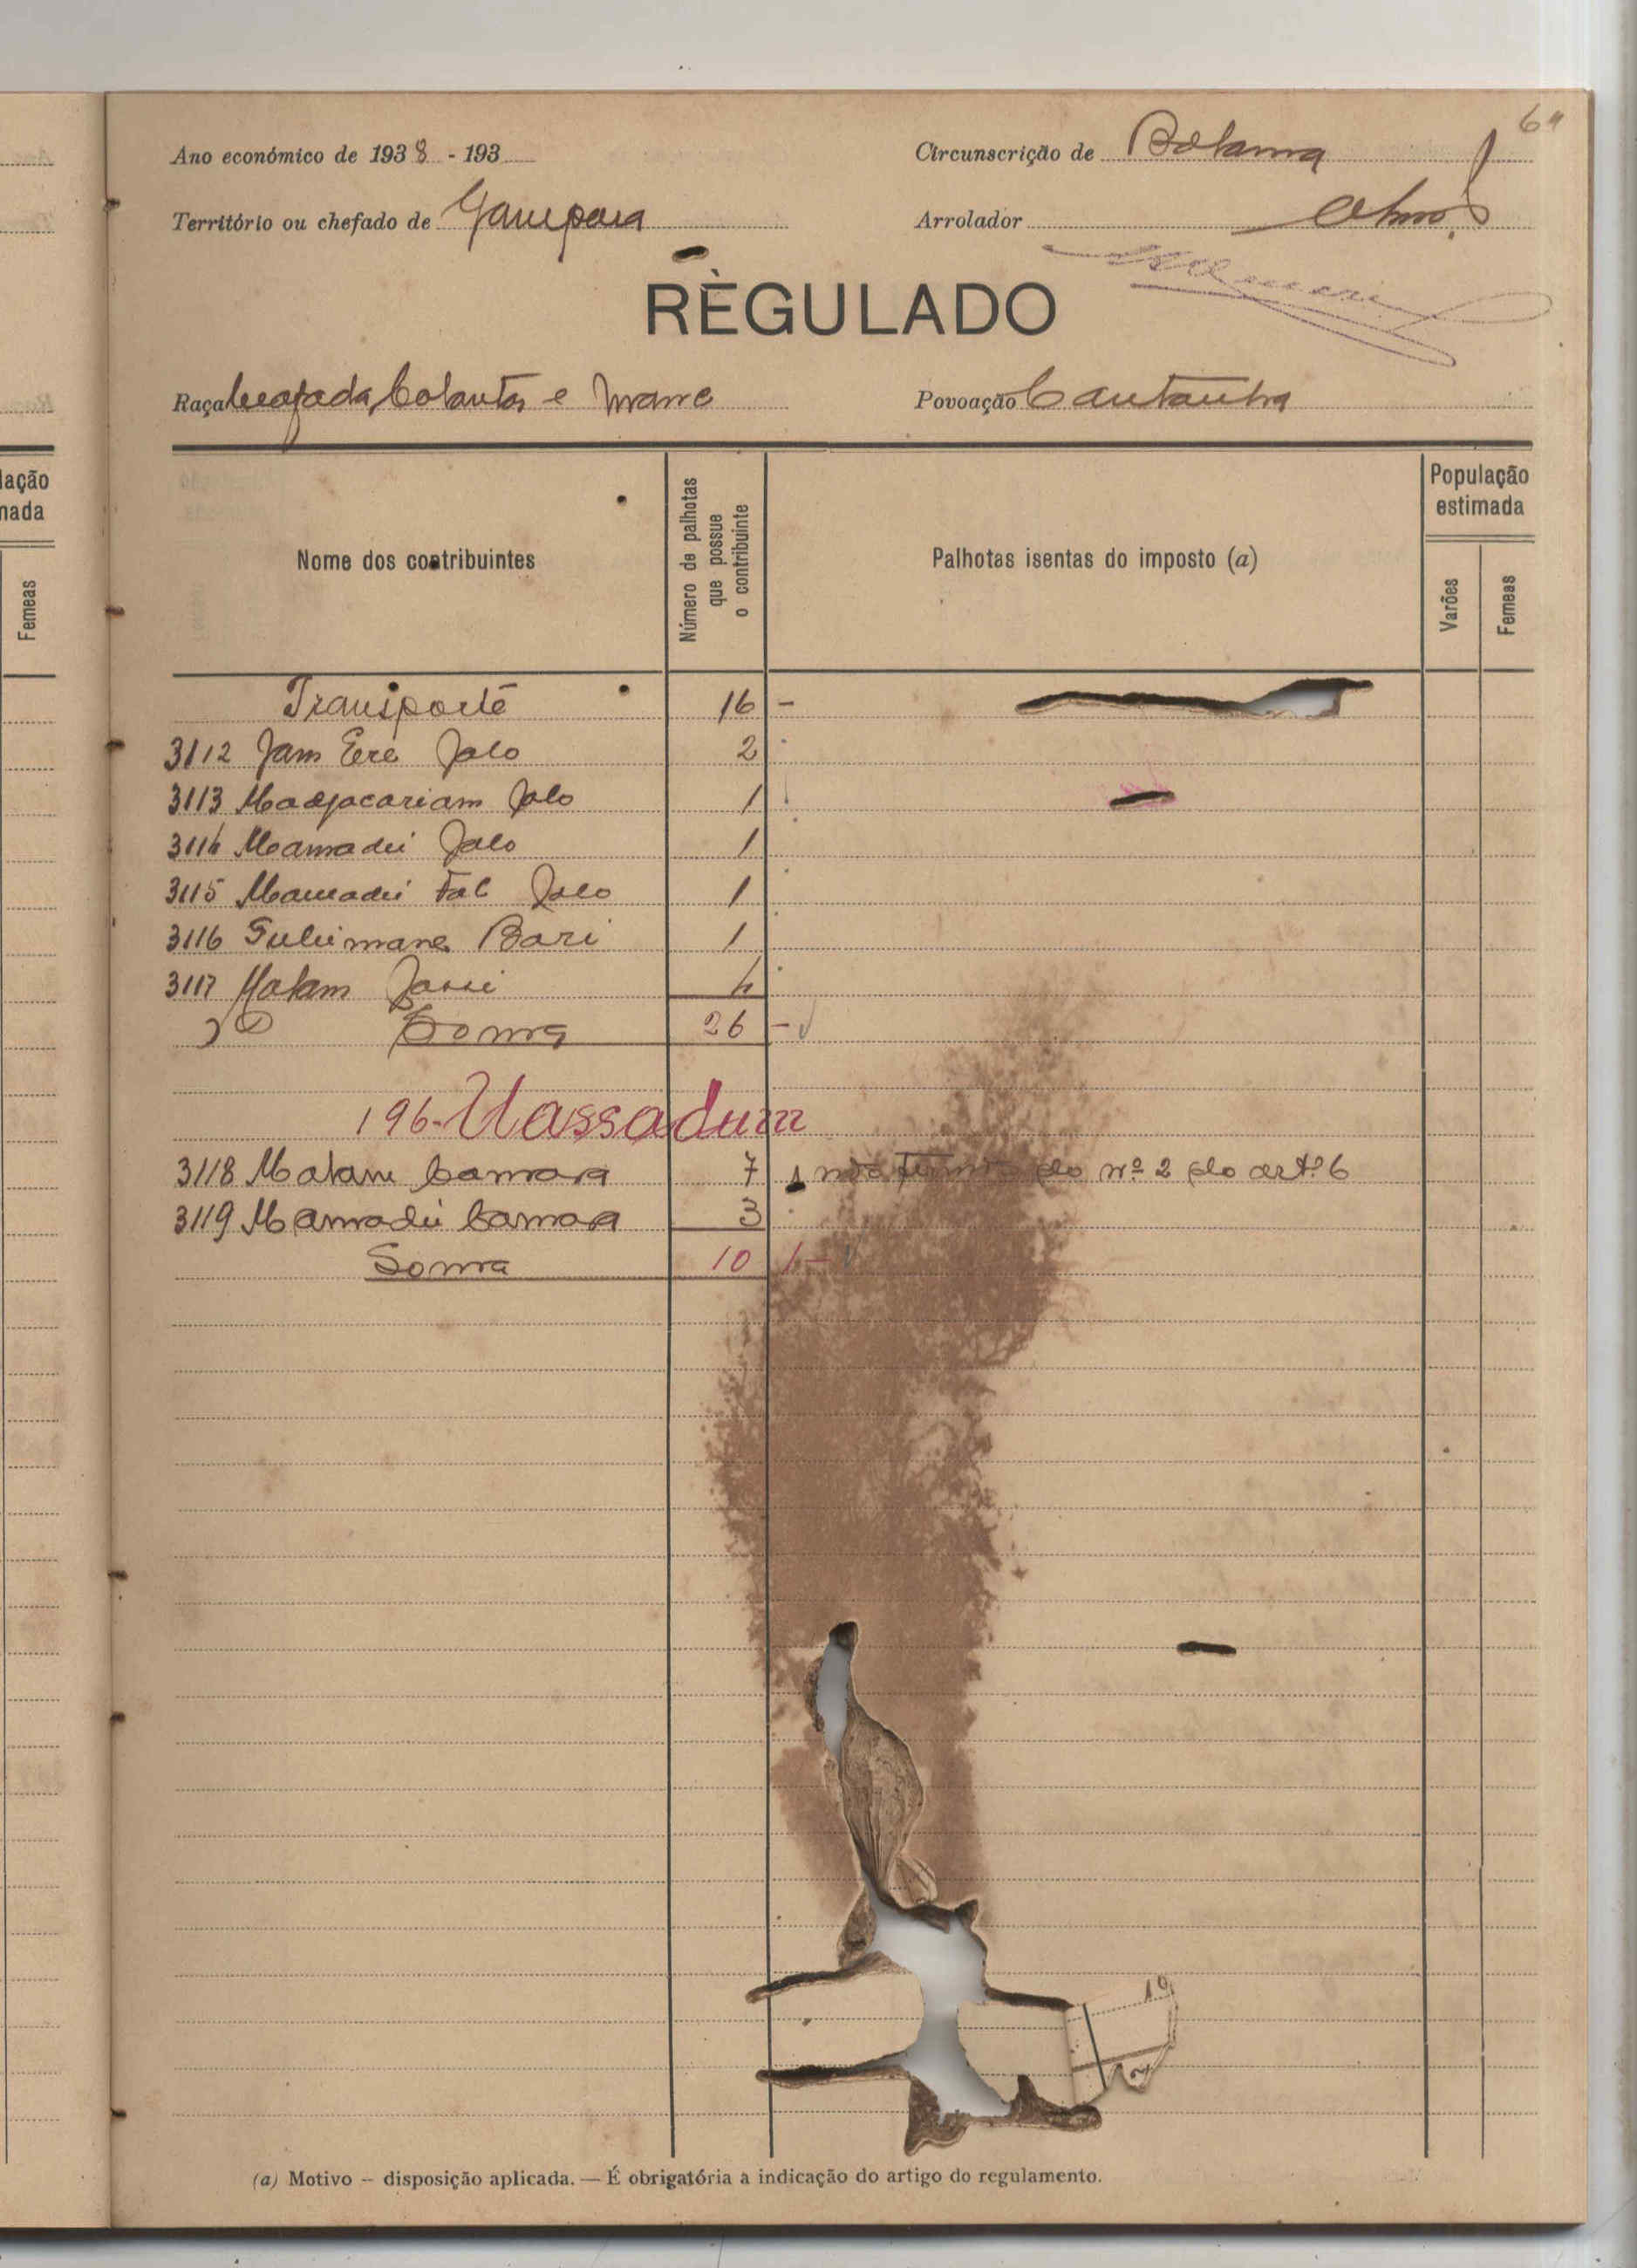 64
Ano económico de 1938 - 193
Circunscrição de Bolama
Território ou chefado de Gampara
Arrolador
REGULADO
Raça Beafada, Balantas e
Povoação Cantanha
lação
nada
Femeas
Nome dos contribuintes
Número de palhotas que possue o contribuinte
Palhotas isentas do imposto (a)
População estimada
Varões
Femeas
Transporte 16 -
3112 Jam Ere Jalo 2
3113 Madjacariam Jalo 1
3114 Mamadú Jalo 1
3115 Mamadú Fal Jalo 1
3116 Sulimane Bari 1
3117 Malam Jassi 4
Soma 26 - √
196-Uassadum
3118 Malam Camara 7 1 do nº 2 do artº 6
3119 Mamadú Camara 3
Soma 10 1 - √
19
2
(a) Motivo — disposição aplicada. — É obrigatória a indicação do artigo do regulamento.